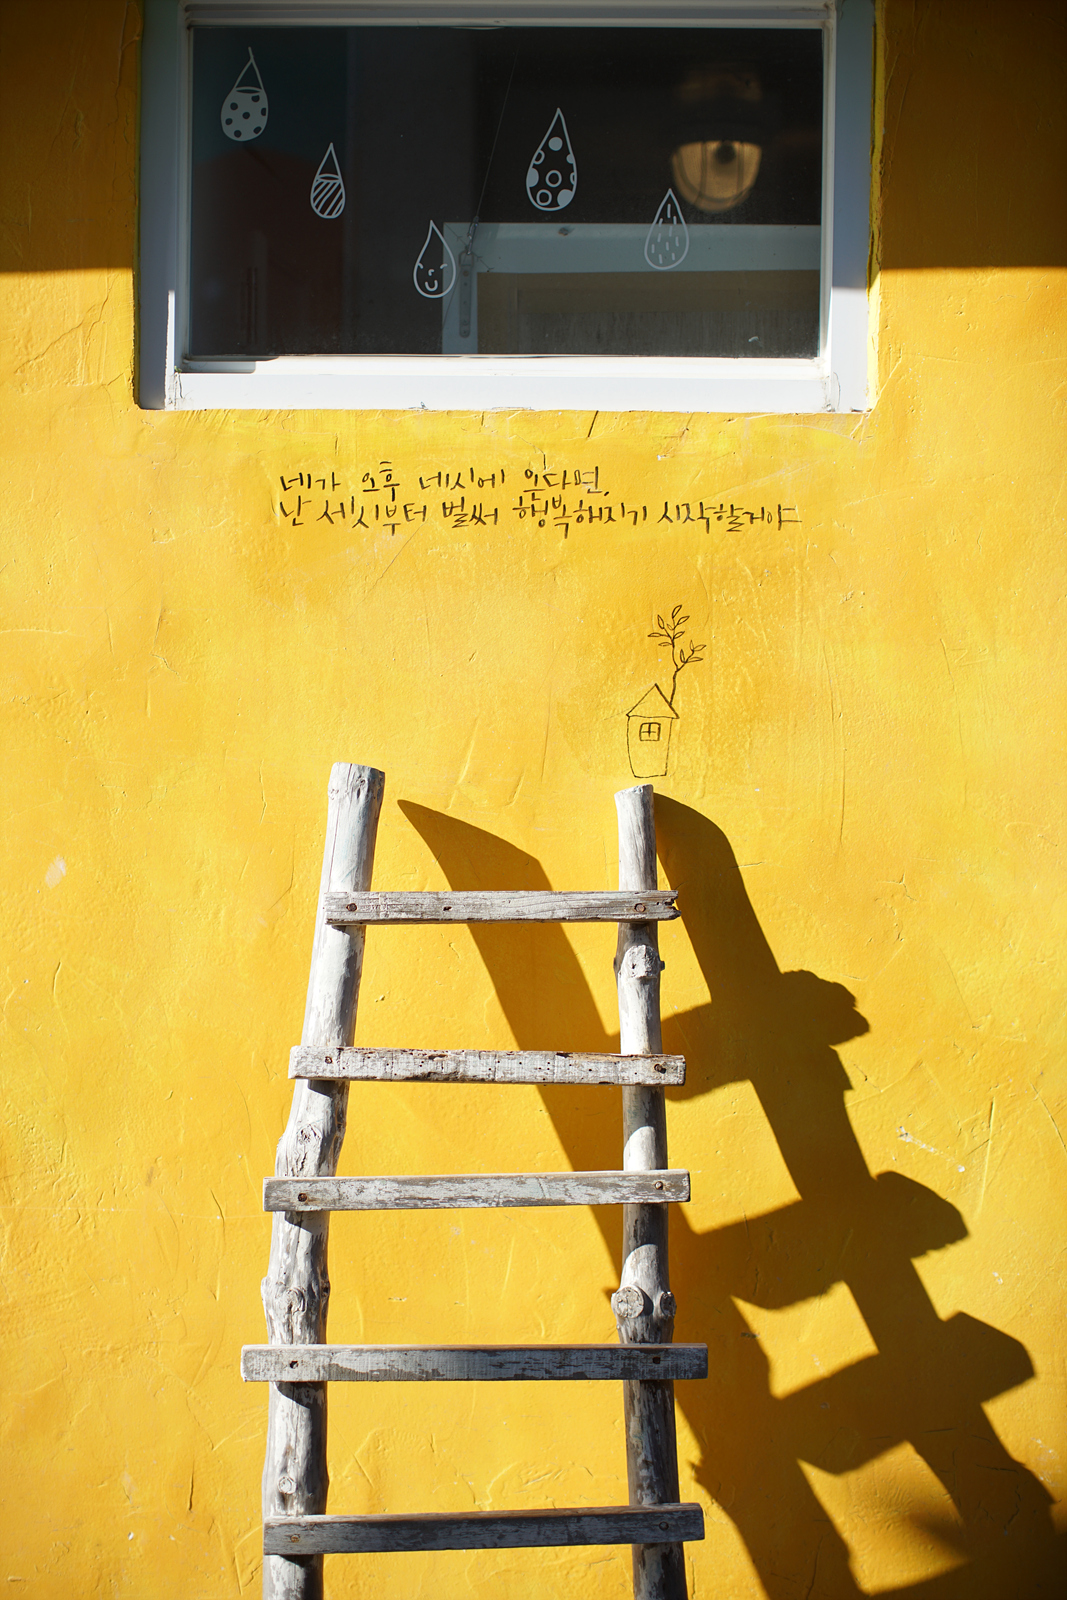 네가 오후 네시에 온다면,
난 세시부터 벌써 행복해지기 시작할거야